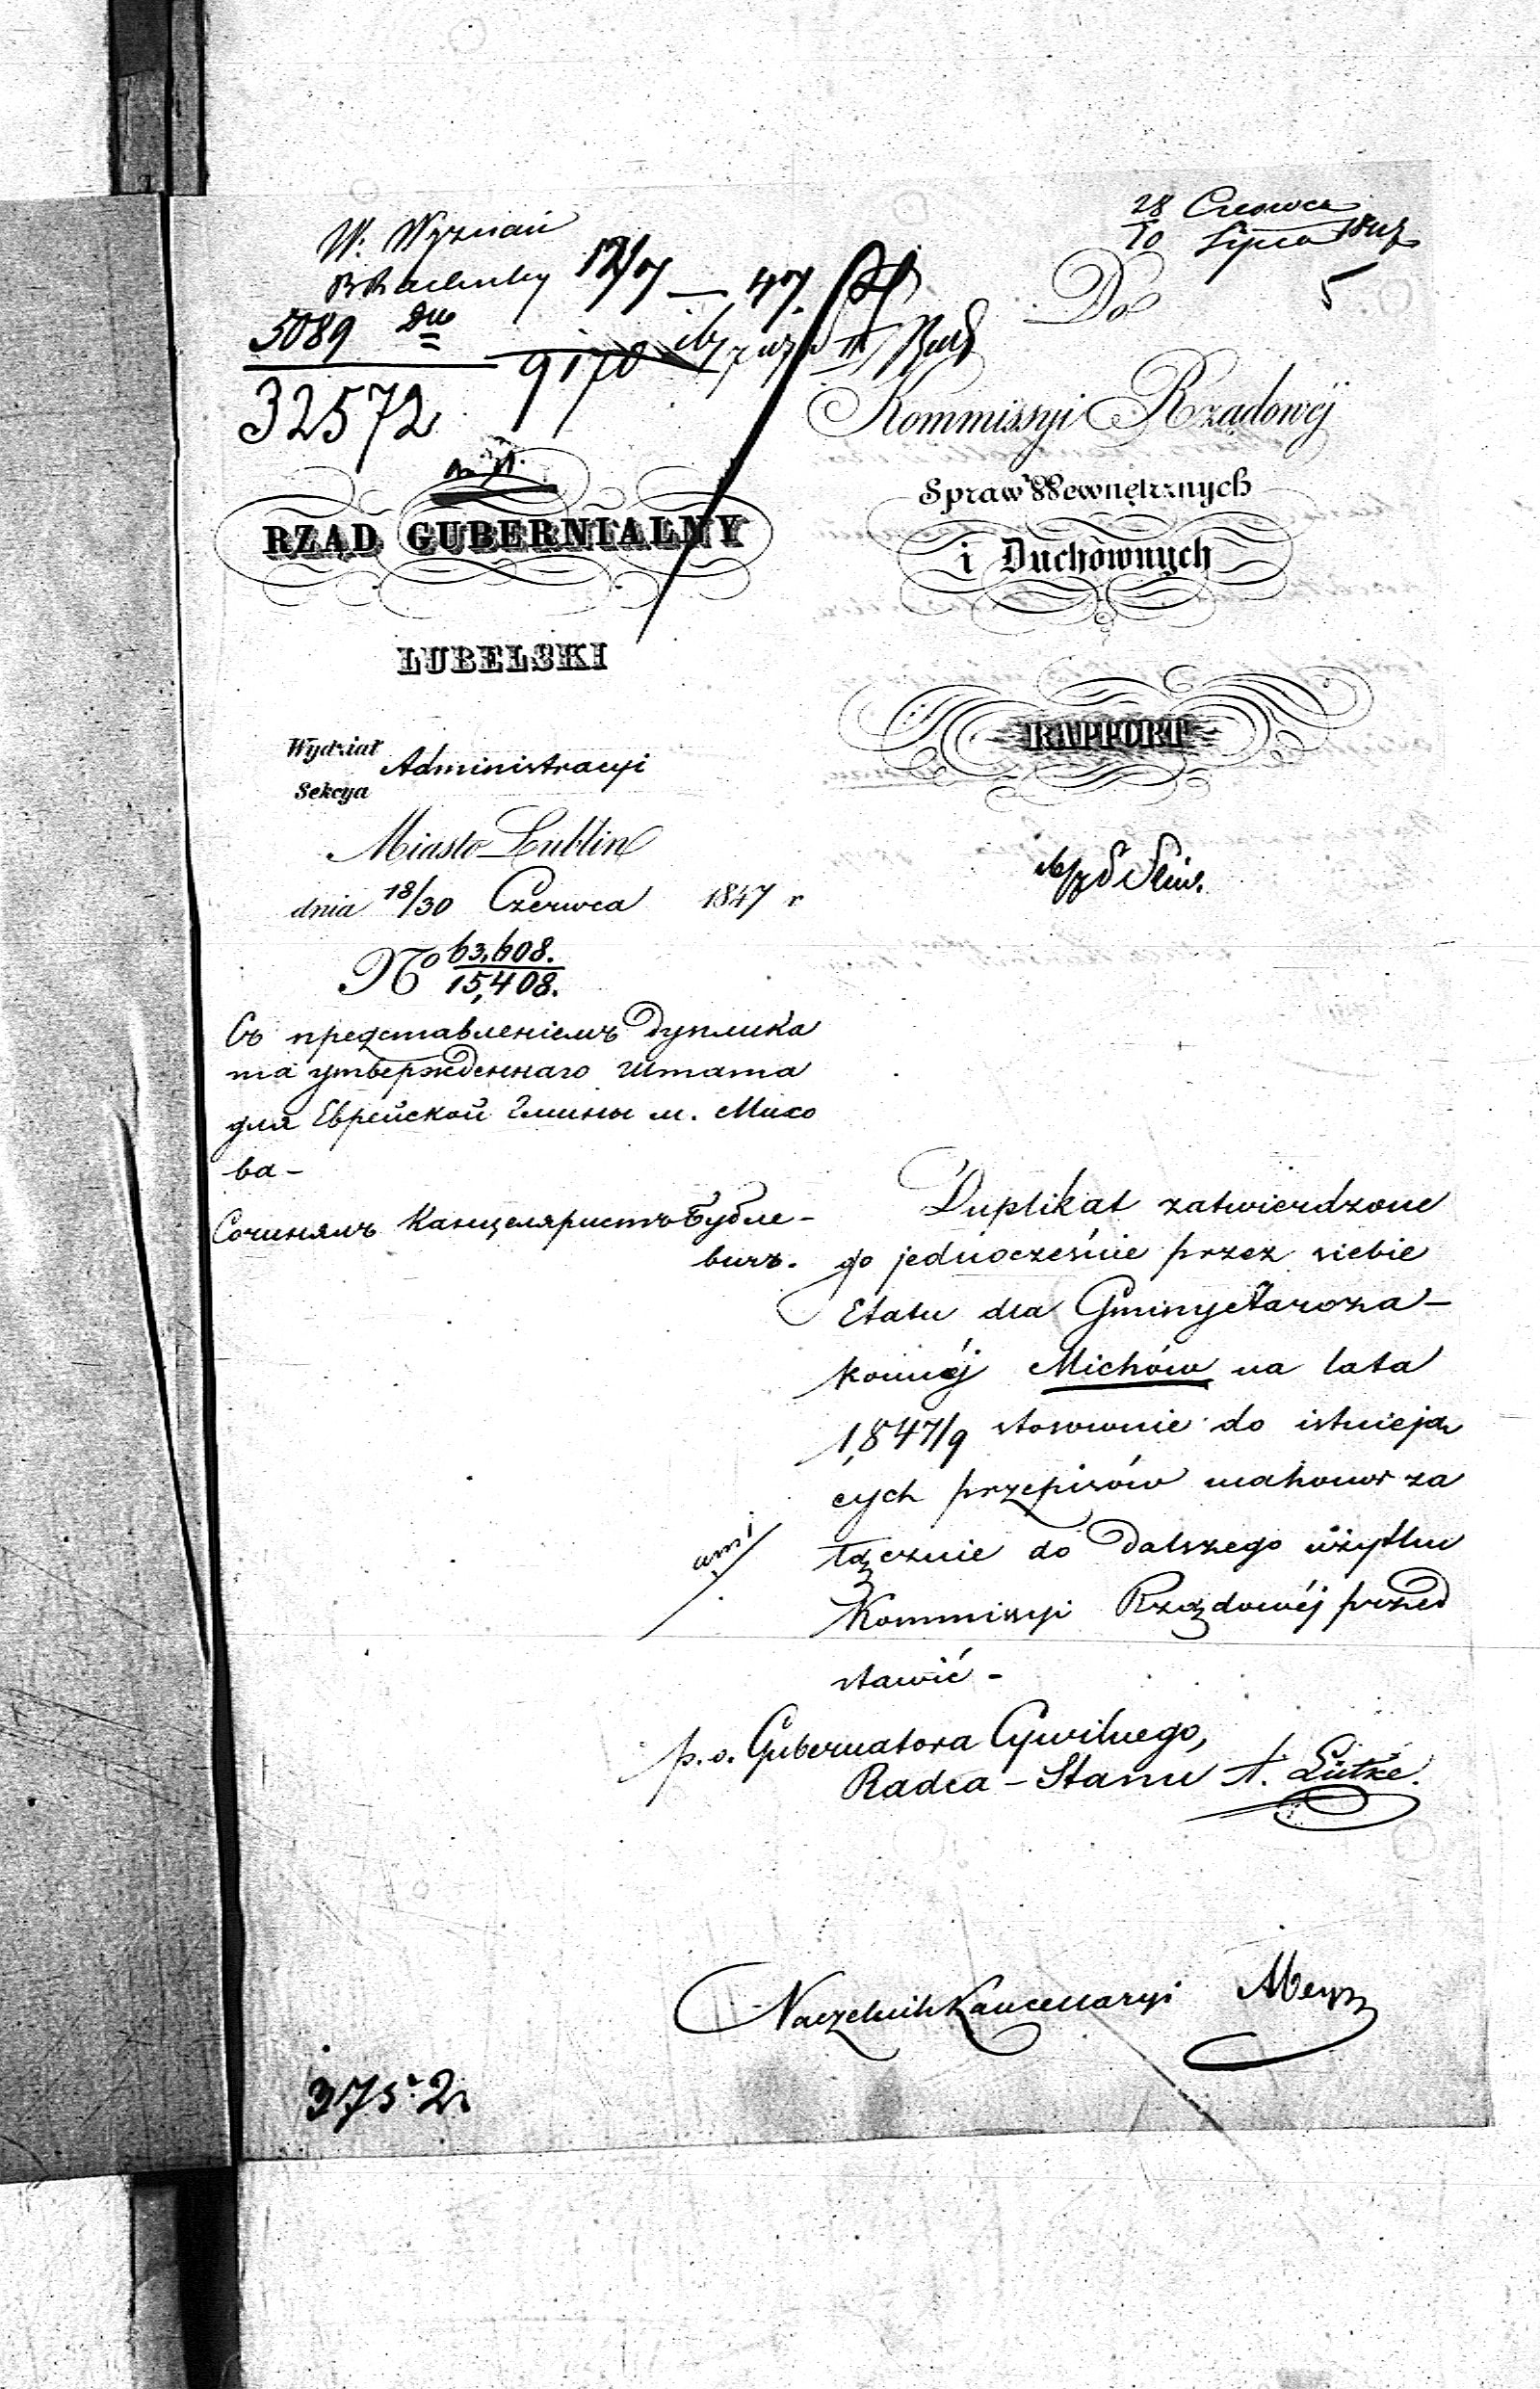 W. Wyznań
12/7 — 47.
5089
32572
9170
28 Czerwca
10 Lipca 1847
5
Do
Kommissyi Rządowéj
Spraw Wewnętrznych
i Duchownych
RAPPORT
RZĄD GUBERNIALNY
LUBELSKI
Wydział Administracyi
Sekcya
Miasto Lublin
dnia 18/30 Czerwca 1847 r
No 63,608.
15,408.
Съ представленіемъ Дуплика
та утвержденнаго Штата
для Еврейской Гмины м. Михо
ва -
Сочинялъ Канцеляристъ
Duplikat zatwierdzone
go jednocześnie przez siebie
Etatu dla Gminy Staroza-
konnéj Michów na lata
1847/9 stosownie do istnieją
cych przepisów ma honor za
łącznie do dalszego użytku
Kommissyi Rządowéj przed
stawić -
p. o. Gubernatora Cywilnego,
Radca - Stanu A. Lütke.
Naczelnik Kancellaryi
375. 2.